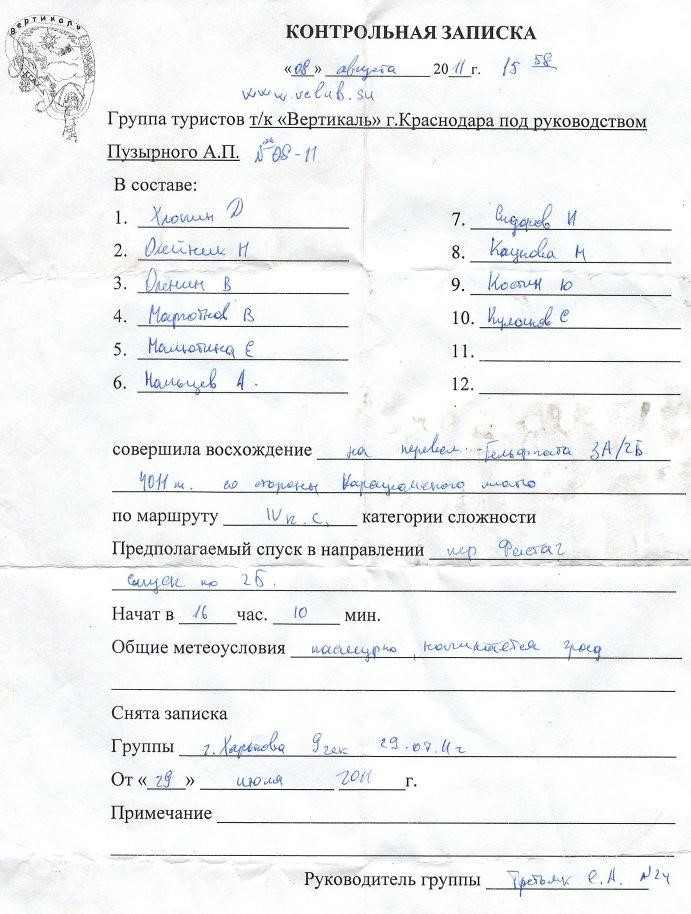 Вертикаль
КОНТРОЛЬНАЯ ЗАПИСКА
«08» августа 2011г. 15 58
www.vclub.su
Группа туристов т/к «Вертикаль» г.Краснодара под руководством
Пузырного А.П. №08-11
В составе:
1. Хлопин Д
2. Олейник Н
3. Оленин В
4. В
5. Малютина Е
6. Мальцев А.
7. Сидоров И
8. М
9. Костин Ю
10. Кулаков С
11.
12.
совершила восхождение на перевал Гельфгата 3А/2Б
4011 м. со стороны Караугомского плато
по маршруту IV к.с. категории сложности
Предполагаемый спуск в направлении пер Фастаг
спуск по 2Б.
Начат в 16 час. 10 мин.
Общие метеоусловия пасмурно, начинается град
Снята записка
Группы г. Харькова 9чек 29.07.11г
От «29» июля 2011г.
Примечание
Руководитель группы Третьяк С.А. №24